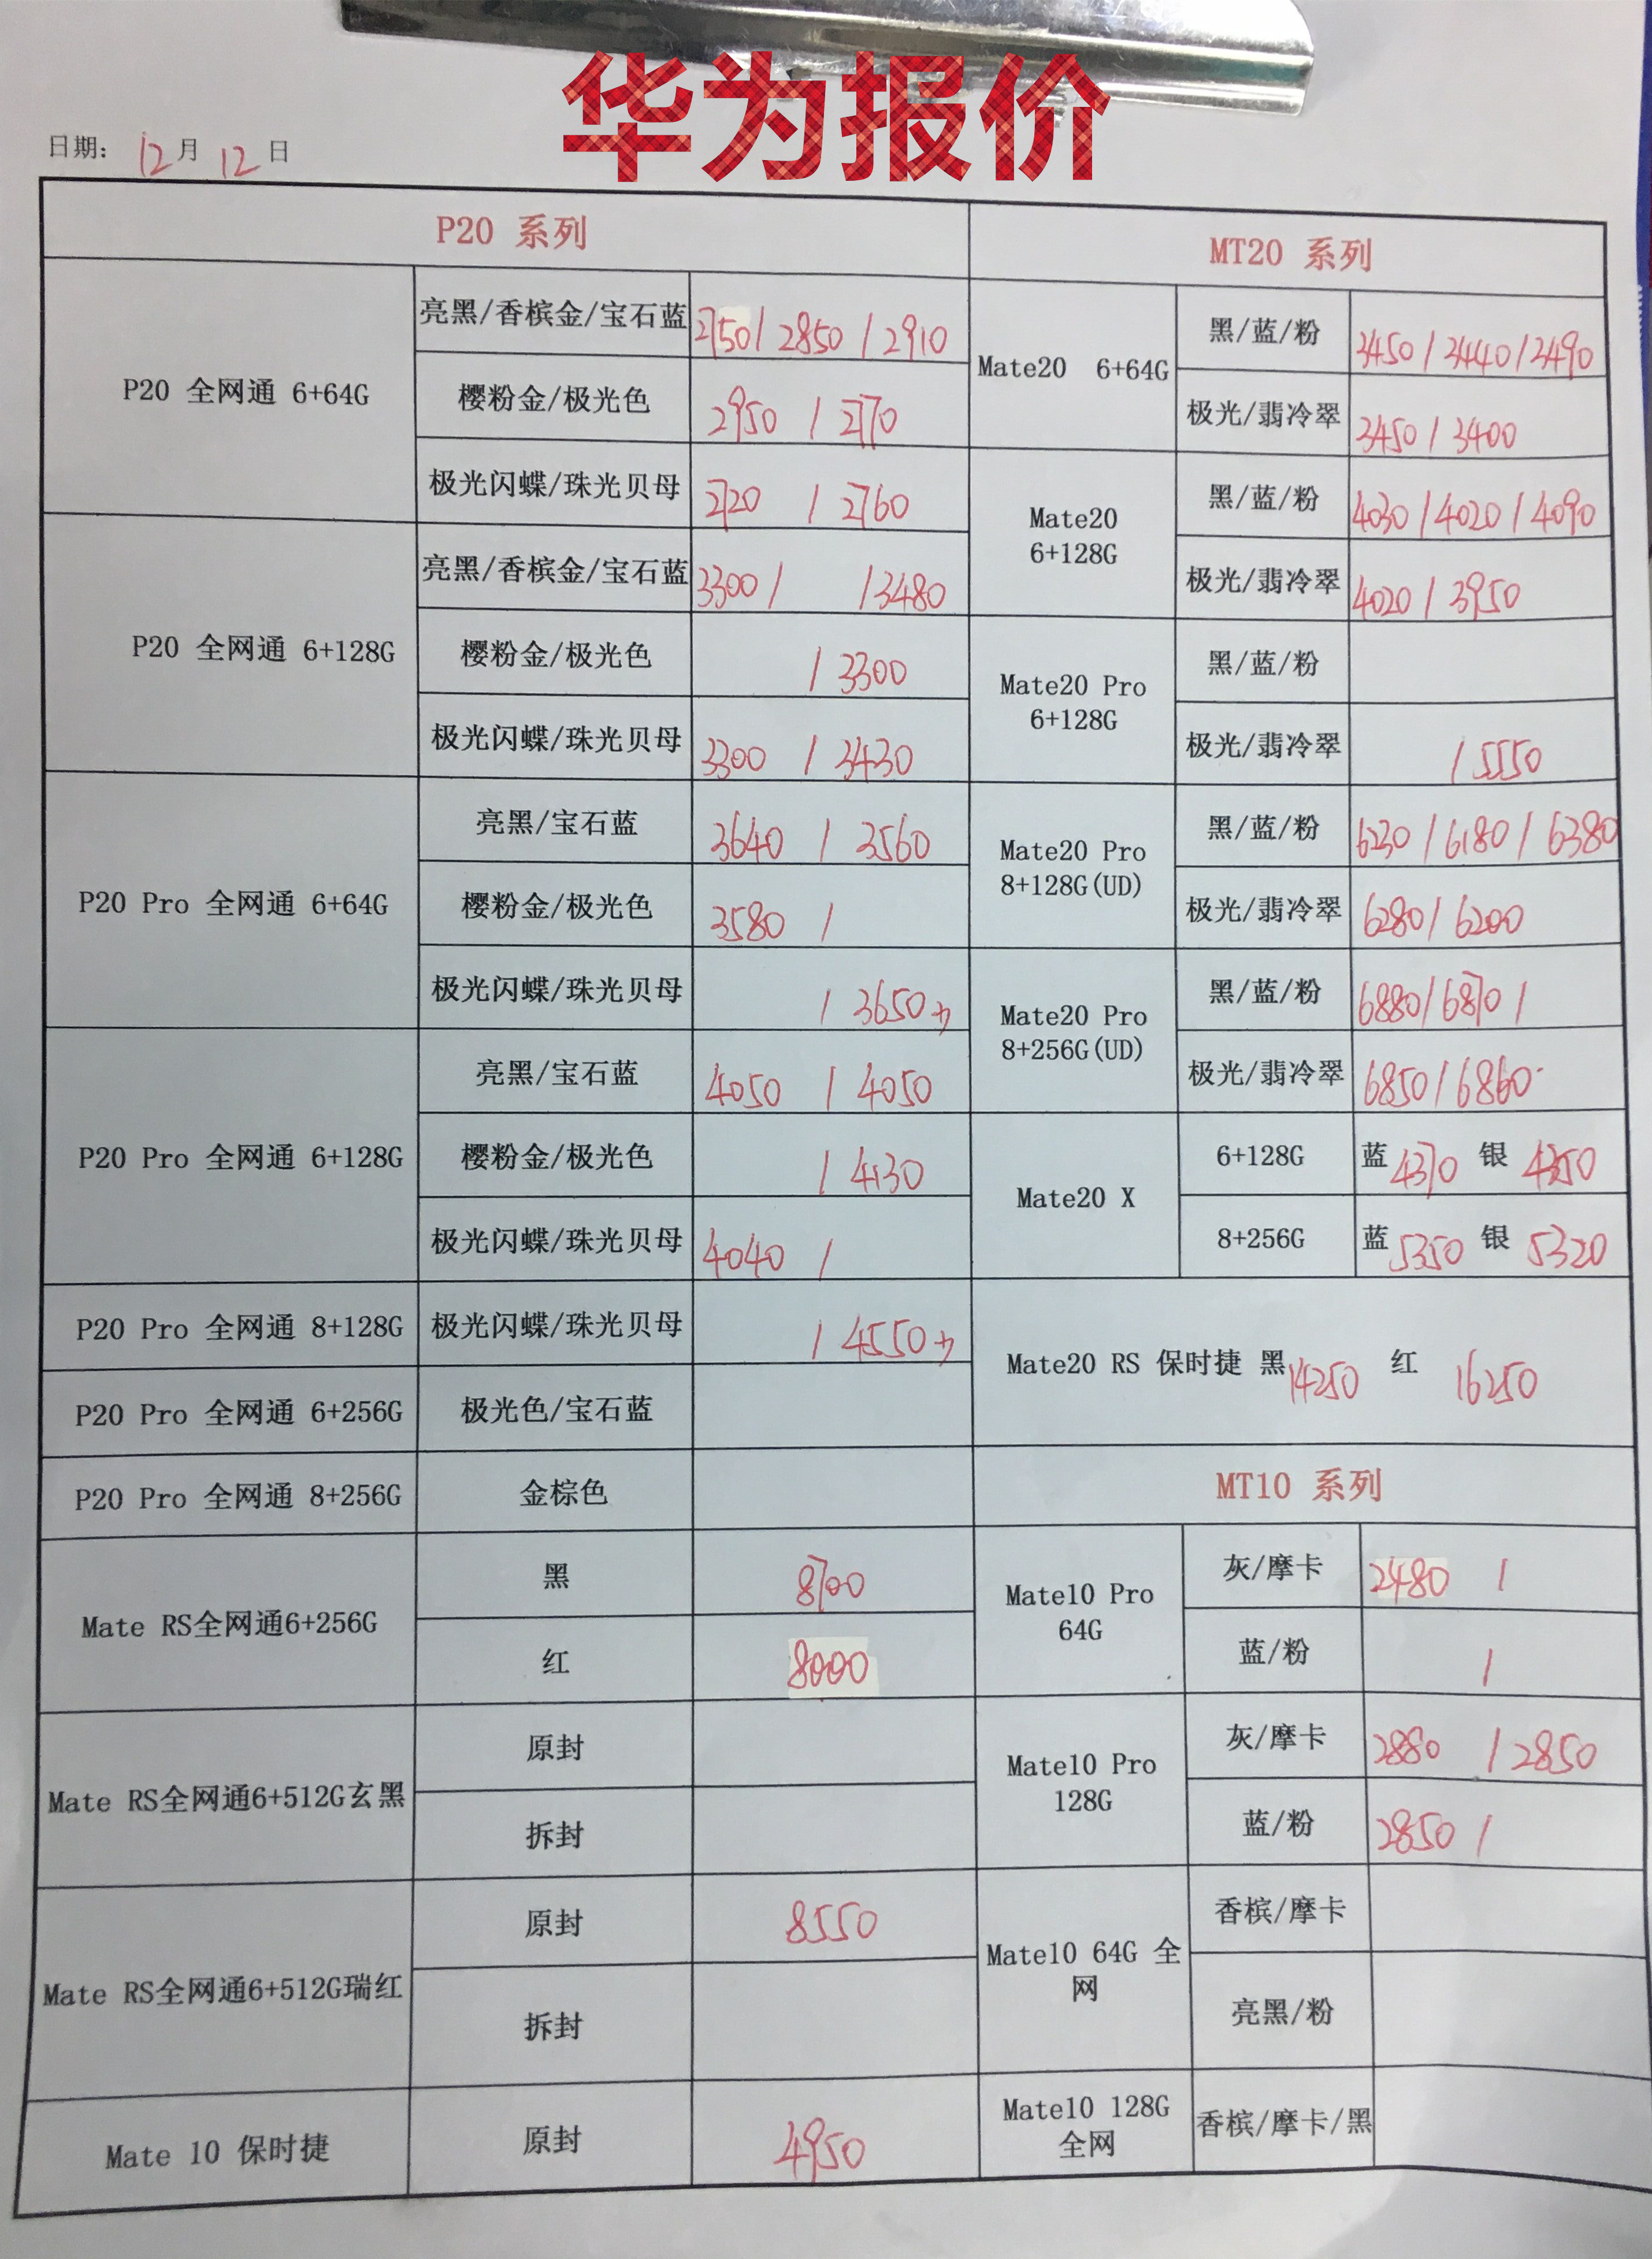 华为报价
日期: 12月 12日
P20 系列
P20 全网通 6+64G
亮黑/香槟金/宝石蓝 2750/2850/2910
樱粉金/极光色 2950 / 2770
极光闪蝶/珠光贝母 2720 / 2760
P20 全网通 6+128G
亮黑/香槟金/宝石蓝 3300/ /3480
樱粉金/极光色 / 3300
极光闪蝶/珠光贝母 3300 / 3430
P20 Pro 全网通 6+64G
亮黑/宝石蓝 3640 / 3560
樱粉金/极光色 3580 /
极光闪蝶/珠光贝母 / 3650
P20 Pro 全网通 6+128G
亮黑/宝石蓝 4050 / 4050
樱粉金/极光色 / 4130
极光闪蝶/珠光贝母 4040 /
P20 Pro 全网通 8+128G 极光闪蝶/珠光贝母 / 4550
P20 Pro 全网通 6+256G 极光色/宝石蓝
P20 Pro 全网通 8+256G 金棕色
Mate RS全网通6+256G
黑 8700
红 8000
Mate RS全网通6+512G玄黑
原封
拆封
Mate RS全网通6+512G瑞红
原封 8550
拆封
Mate 10 保时捷 原封 4950
MT20 系列
Mate20 6+64G
黑/蓝/粉 3450/3440/3490
极光/翡冷翠 3450/3400
Mate20
6+128G
黑/蓝/粉 4030/4020/4090
极光/翡冷翠 4020/3950
Mate20 Pro
6+128G
黑/蓝/粉
极光/翡冷翠 / 5550
Mate20 Pro
8+128G(UD)
黑/蓝/粉 6230/6180/6380
极光/翡冷翠 6280/6200
Mate20 Pro
8+256G(UD)
黑/蓝/粉 6880/6870/
极光/翡冷翠 6850/6860
Mate20 X
6+128G 蓝 4370 银 4350
8+256G 蓝 5350 银 5320
Mate20 RS 保时捷 黑 14250 红 16250
MT10 系列
Mate10 Pro
64G
灰/摩卡 2480 /
蓝/粉 /
Mate10 Pro
128G
灰/摩卡 2880 / 2850
蓝/粉 2850 /
Mate10 64G 全
网
香槟/摩卡
亮黑/粉
Mate10 128G
全网
香槟/摩卡/黑